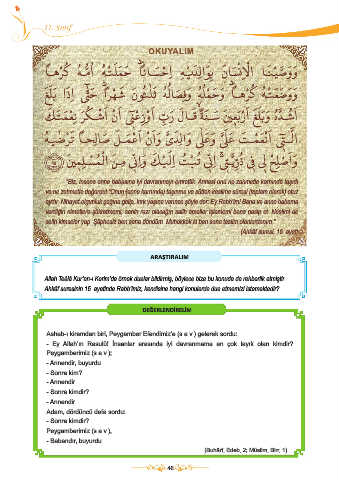 11. SINIF
OKUYALIM
وَوَصَّيْنَا الْاِنْسَانَ بِوَالِدَيْهِ اِحْسَانًاۜ حَمَلَتْهُ اُمُّهُ كُرْهًا
وَوَضَعَتْهُ كُرْهًاۜ وَحَمْلُهُ وَفِصَالُهُ ثَلٰثُونَ شَهْرًاۜ حَتّٰٓى اِذَا بَلَغَ
اَشُدَّهُ وَبَلَغَ اَرْبَع۪ينَ سَنَةًۙ قَالَ رَبِّ اَوْزِعْن۪ٓي اَنْ اَشْكُرَ نِعْمَتَكَ
الَّت۪ٓي اَنْعَمْتَ عَلَيَّ وَعَلٰى وَالِدَيَّ وَاَنْ اَعْمَلَ صَالِحًا تَرْضٰيهُ
وَاَصْلِحْ ل۪ي ف۪ي ذُرِّيَّت۪يۚ اِنّ۪ي تُبْتُ اِلَيْكَ وَاِنّ۪ي مِنَ الْمُسْلِم۪ينَ
"Biz, insana anne babasına iyi davranmayı emrettik. Annesi onu ne zahmetle karnında taşıdı
ve ne zahmetle doğurdu! Onun (anne karnında) taşınma ve sütten kesilme süresi (toplam olarak) otuz
aydır. Nihayet olgunluk çağına gelip, kırk yaşına varınca şöyle der: Ey Rabb'im! Bana ve anne babama
verdiğin nimetlere şükretmemi, senin razı olacağın salih ameller işlememi bana nasip et. Neslimi de
salih kimseler yap. Şüphesiz ben sana döndüm. Muhakkak ki ben sana teslim olanlardanım."
(Ahkâf suresi, 15. ayet)
ARAŞTIRALIM
Allah Teâlâ Kur'an-ı Kerim'de örnek dualar bildirmiş, böylece bize bu konuda da rehberlik etmiştir.
Ahkâf suresinin 15. ayetinde Rabb'imiz, kendisine hangi konularda dua etmemizi istemektedir?
DEĞERLENDİRELİM
Ashab-ı kiramdan biri, Peygamber Efendimiz'e (s.a.v.) gelerek sordu:
- Ey Allah'ın Rasulü! İnsanlar arasında iyi davranmama en çok layık olan kimdir?
Peygamberimiz (s.a.v.);
- Annendir, buyurdu.
- Sonra kim?
- Annendir.
- Sonra kimdir?
- Annendir.
Adam, dördüncü defa sordu:
- Sonra kimdir?
Peygamberimiz (s.a.v.),
- Babandır, buyurdu.
(Buhârî, Edeb, 2; Müslim, Birr, 1)